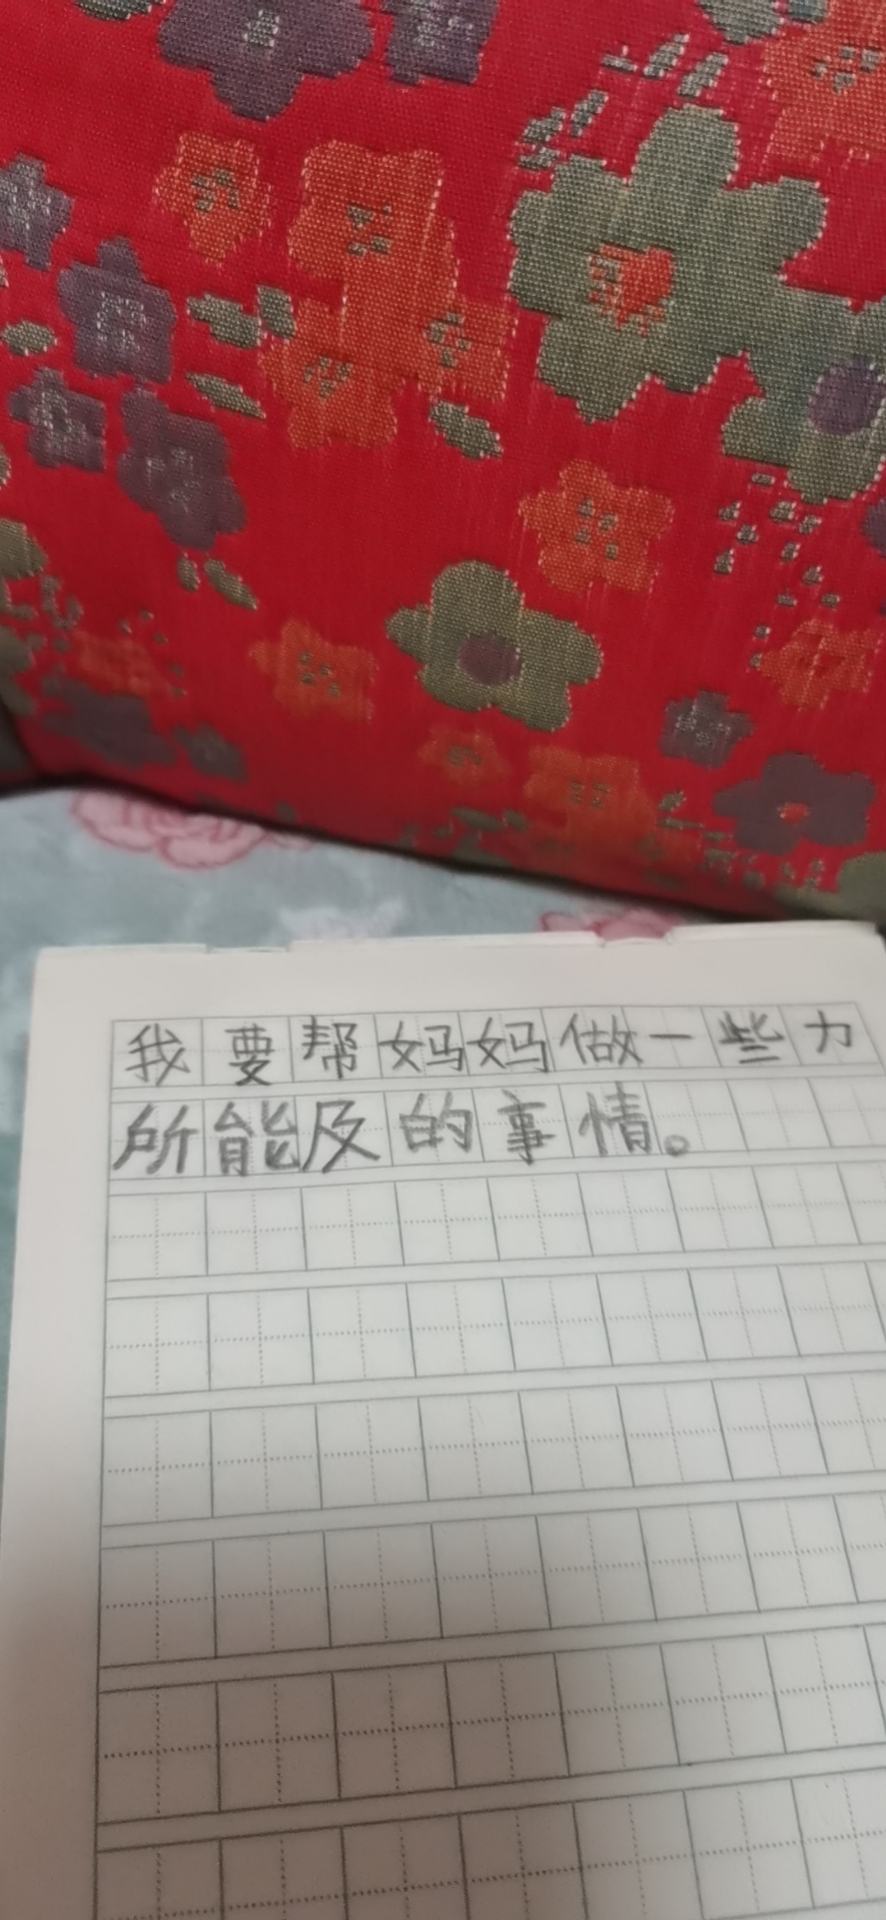 我要帮妈妈做一些力
所能及的事情。